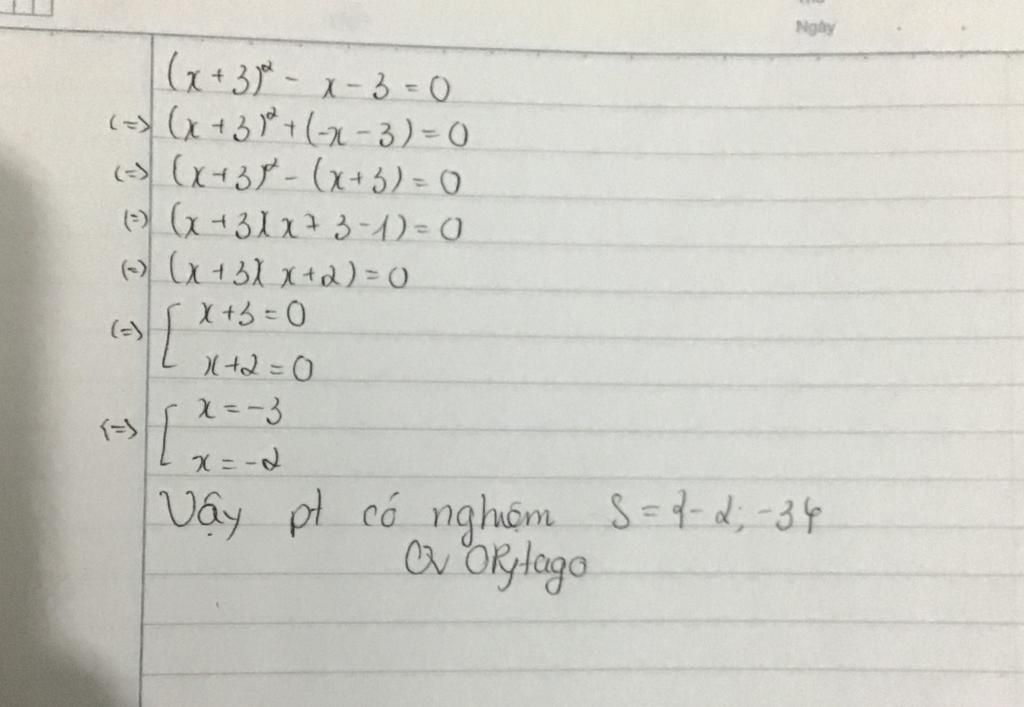 Ngày
(x+3)² - x - 3 = 0
(=) (x+3)² + (-x - 3) = 0
(=) (x+3)² - (x+3) = 0
(=) (x+3)(x+3-1) = 0
(=) (x+3)(x+2) = 0
(=) [ x+3 = 0
x+2 = 0
(=) [ x = -3
x = -2
Vậy pt có nghiệm S = {-2; -3}